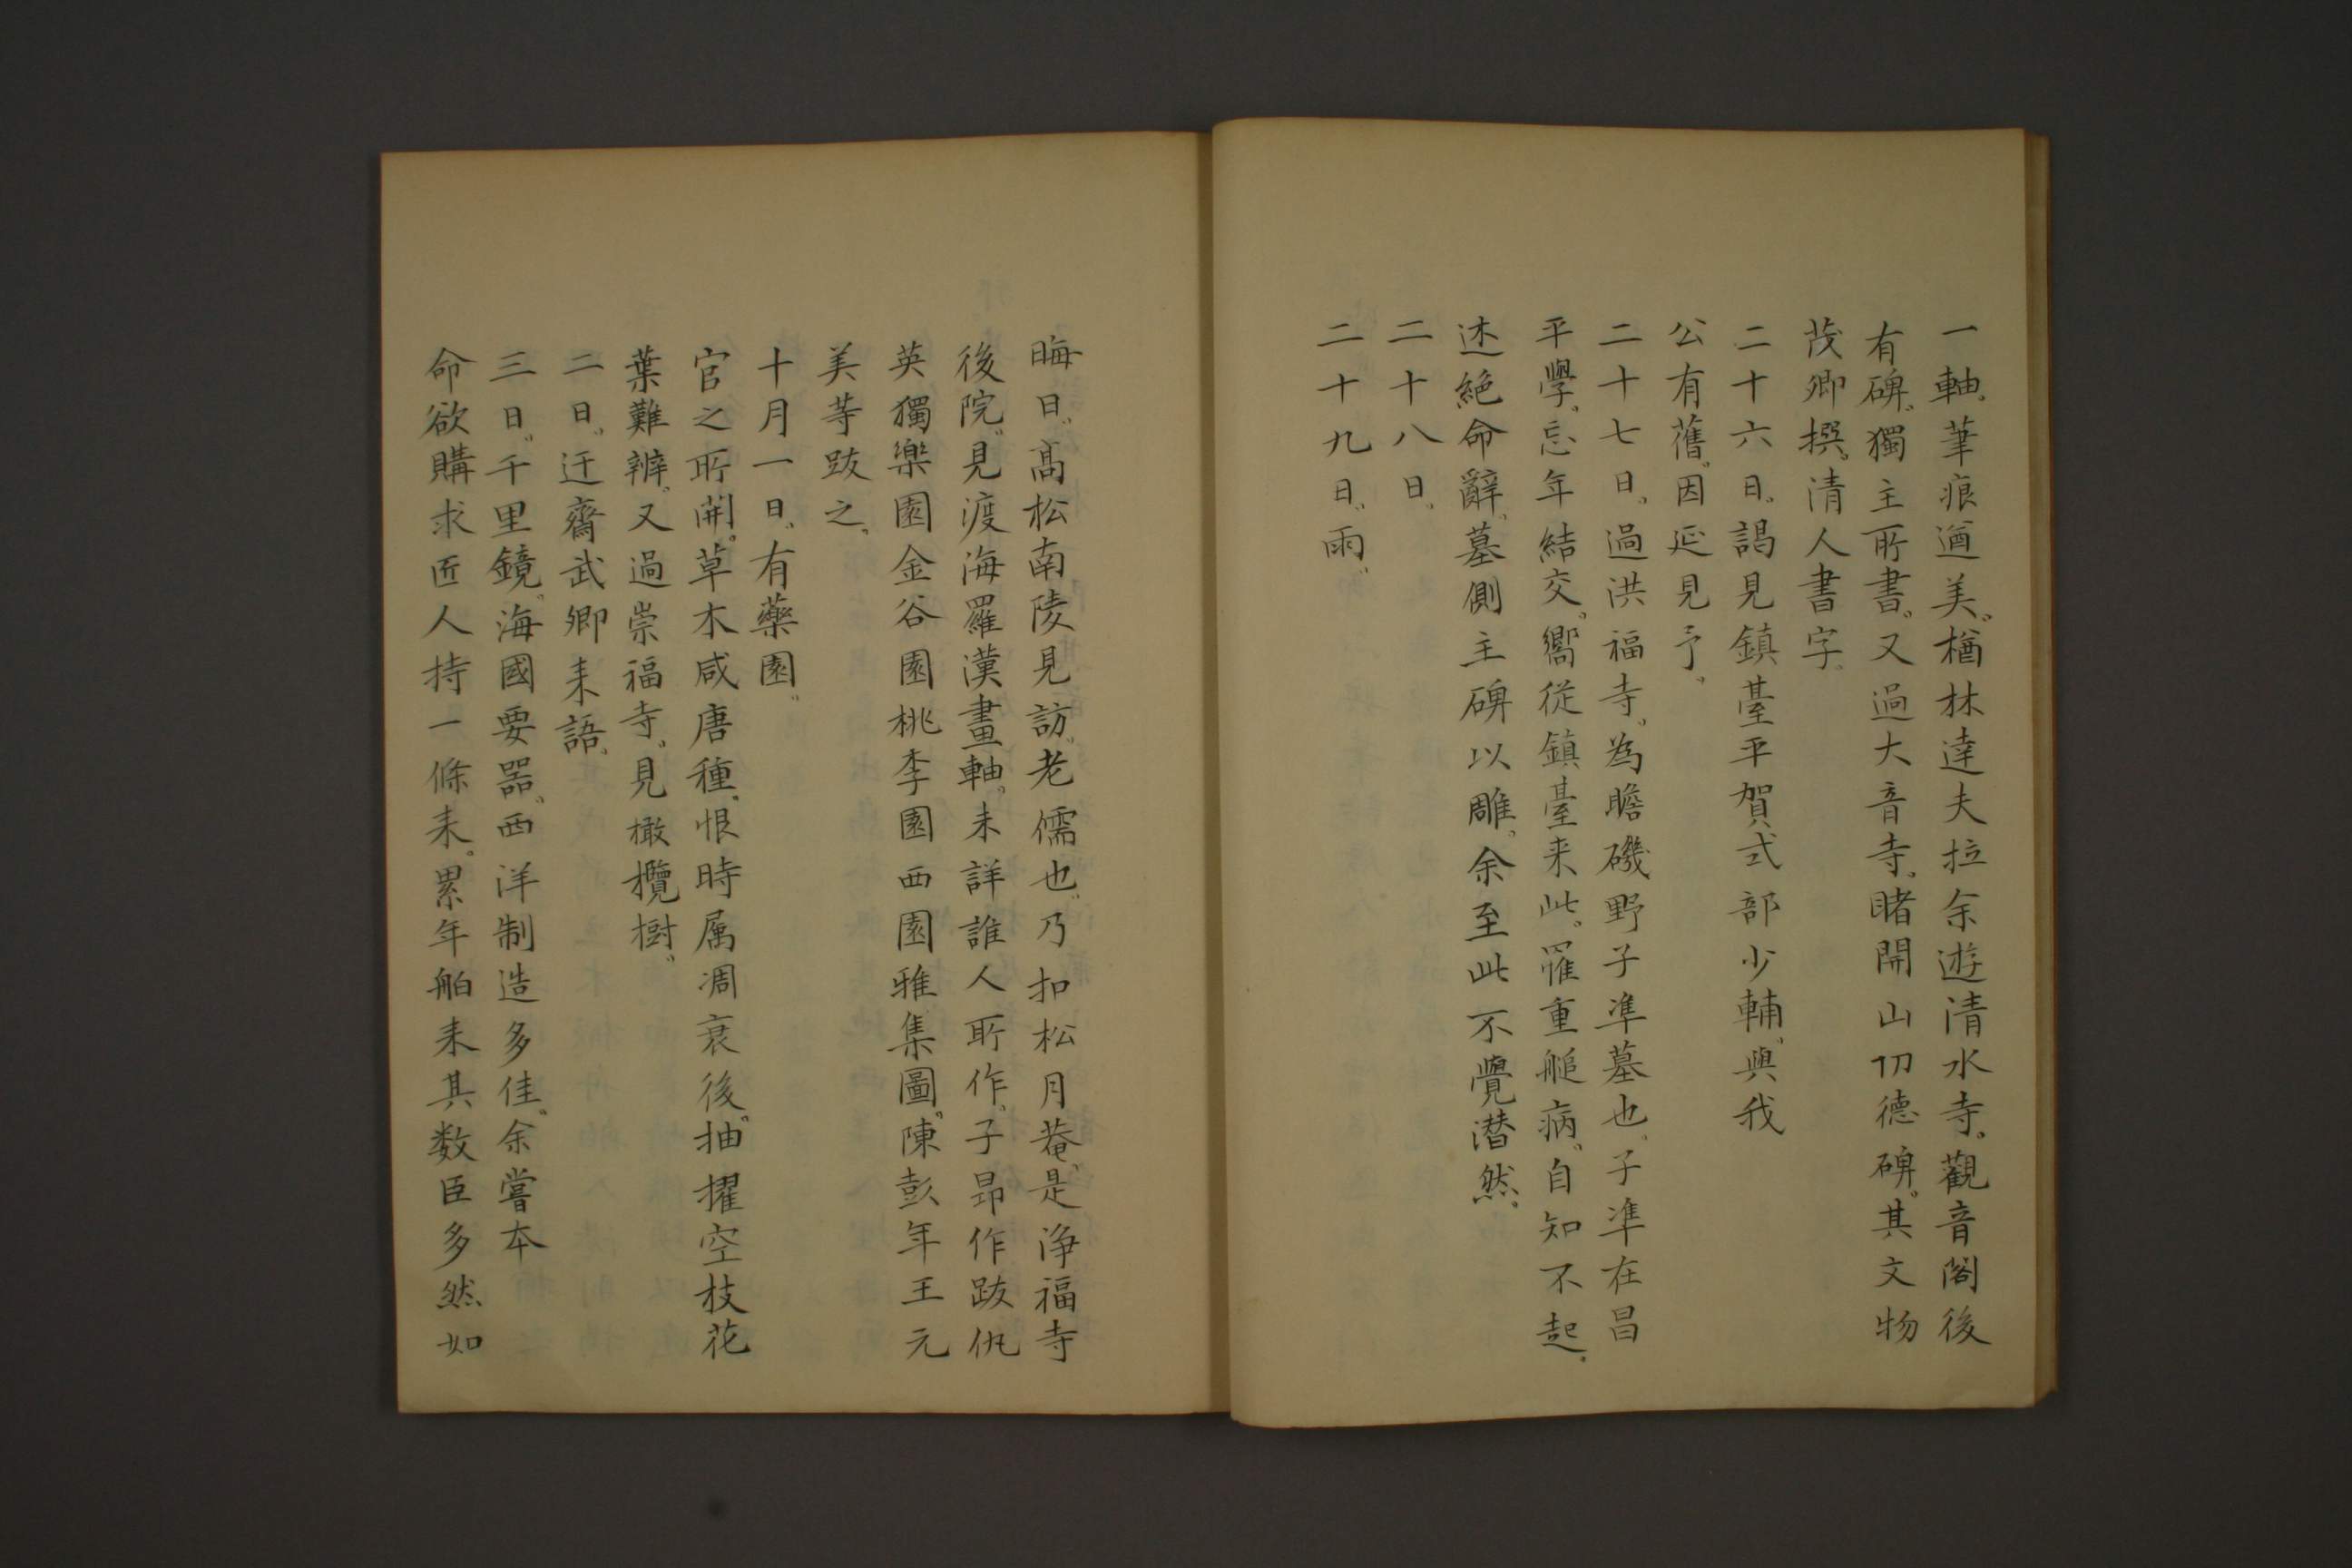 一軸。筆痕遒美。楢林達夫拉余遊清水寺。觀音閣後
有碑。獨主所書。又過大音寺。睹開山切德碑。其文物
茂卿撰。清人書字。
二十六日。謁見鎮臺平賀式部少輔。與我
公有舊。因延見予。
二十七日。過洪福寺。為瞻磯野子凖墓也。子凖在昌
平學。忘年結交。嚮從鎮臺来此。罹重膇病。自知不起。
述絶命辭。墓側主碑以雕。余至此不覺潜然。
二十八日。
二十九日。雨。
晦日。髙松南陵見訪。老儒也。乃扣松月菴。是浄福寺
後院。見渡海羅漢畫軸。未詳誰人所作。子昻作跋。仇
英獨樂園金谷園桃李園西園雅集圖。陳彭年王元
美等跋之。
十月一日。有藥園。
官之所開。草木咸唐種。恨時属凋衰後。抽擢空枝花
葉難辨。又過崇福寺。見橄欖樹。
二日。迂齋武卿耒語。
三日。千里鏡。海國要器。西洋制造多佳。余嘗夲
命欲購求匠人持一條耒。累年舶耒其数臣多然如